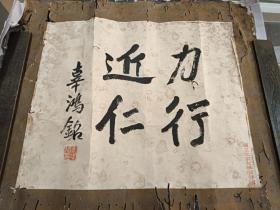 力行
近仁
辜鴻銘